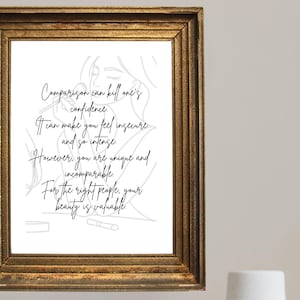 Comparison can kill one's
confidence
It can make you feel insecure
and so intense
However, you are unique and
incomparable
For the right people, your
beauty is valuable